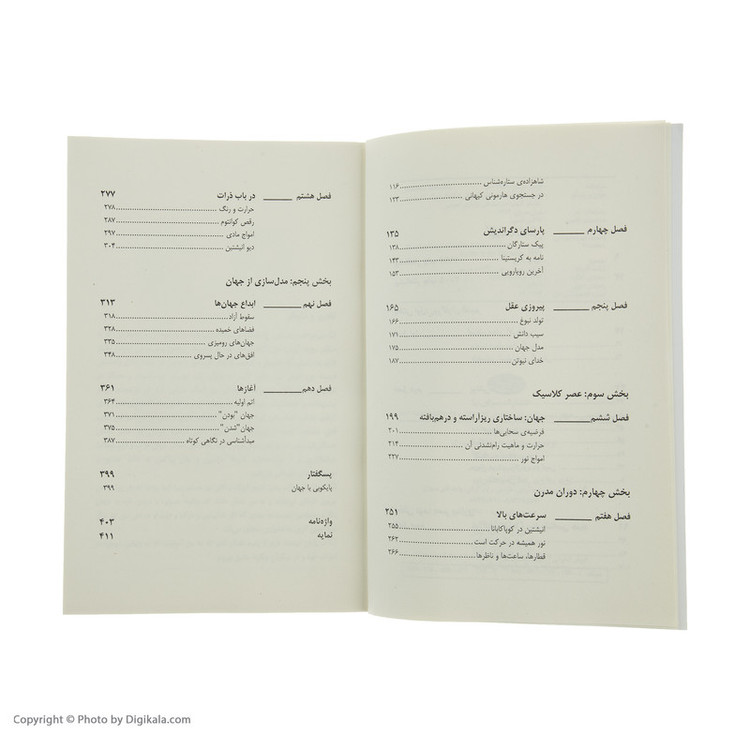 شاهزاده‌ی ستاره‌شناس ۱۱۶
در جستجوی هارمونی کیهانی ۱۲۳
فصل چهارم پارسای دگراندیش ۱۳۵
پیک ستارگان ۱۳۸
نامه به کریستینا ۱۴۳
آخرین رویارویی ۱۵۳
فصل پنجم پیروزی عقل ۱۶۵
تولد نبوغ ۱۶۶
سیب دانش ۱۷۱
مدل جهان ۱۷۵
خدای نیوتن ۱۸۷
بخش سوم: عصر کلاسیک
فصل ششم جهان: ساختاری ریزآراسته و درهم‌بافته ۱۹۹
فرضیه‌ی سحابی‌ها ۲۰۱
حرارت و ماهیت رام‌نشدنی آن ۲۱۴
امواج نور ۲۳۷
بخش چهارم: دوران مدرن
فصل هفتم سرعت‌های بالا ۲۵۱
انیشتین در کوپاکابانا ۲۵۵
نور همیشه در حرکت است ۲۶۲
قطارها، ساعت‌ها و ناظرها ۲۶۶
فصل هشتم در باب ذرات ۲۷۷
حرارت و رنگ ۲۷۸
رقص کوانتوم ۲۸۷
امواج مادی ۲۹۷
دیو انیشتین ۳۰۴
بخش پنجم: مدل‌سازی از جهان
فصل نهم ابداع جهان‌ها ۳۱۳
سقوط آزاد ۳۱۸
فضاهای خمیده ۳۲۸
جهان‌های رومیزی ۳۳۵
افق‌های در حال پسروی ۳۴۸
فصل دهم آغازها ۳۶۱
اتم اولیه ۳۶۴
جهان "بودن" ۳۷۱
جهان "شدن" ۳۷۵
مبدأشناسی در نگاهی کوتاه ۳۸۷
پسگفتار ۳۹۹
پایکوبی با جهان ۳۹۹
واژه‌نامه ۴۰۳
نمایه ۴۱۱
Copyright © Photo by Digikala.com